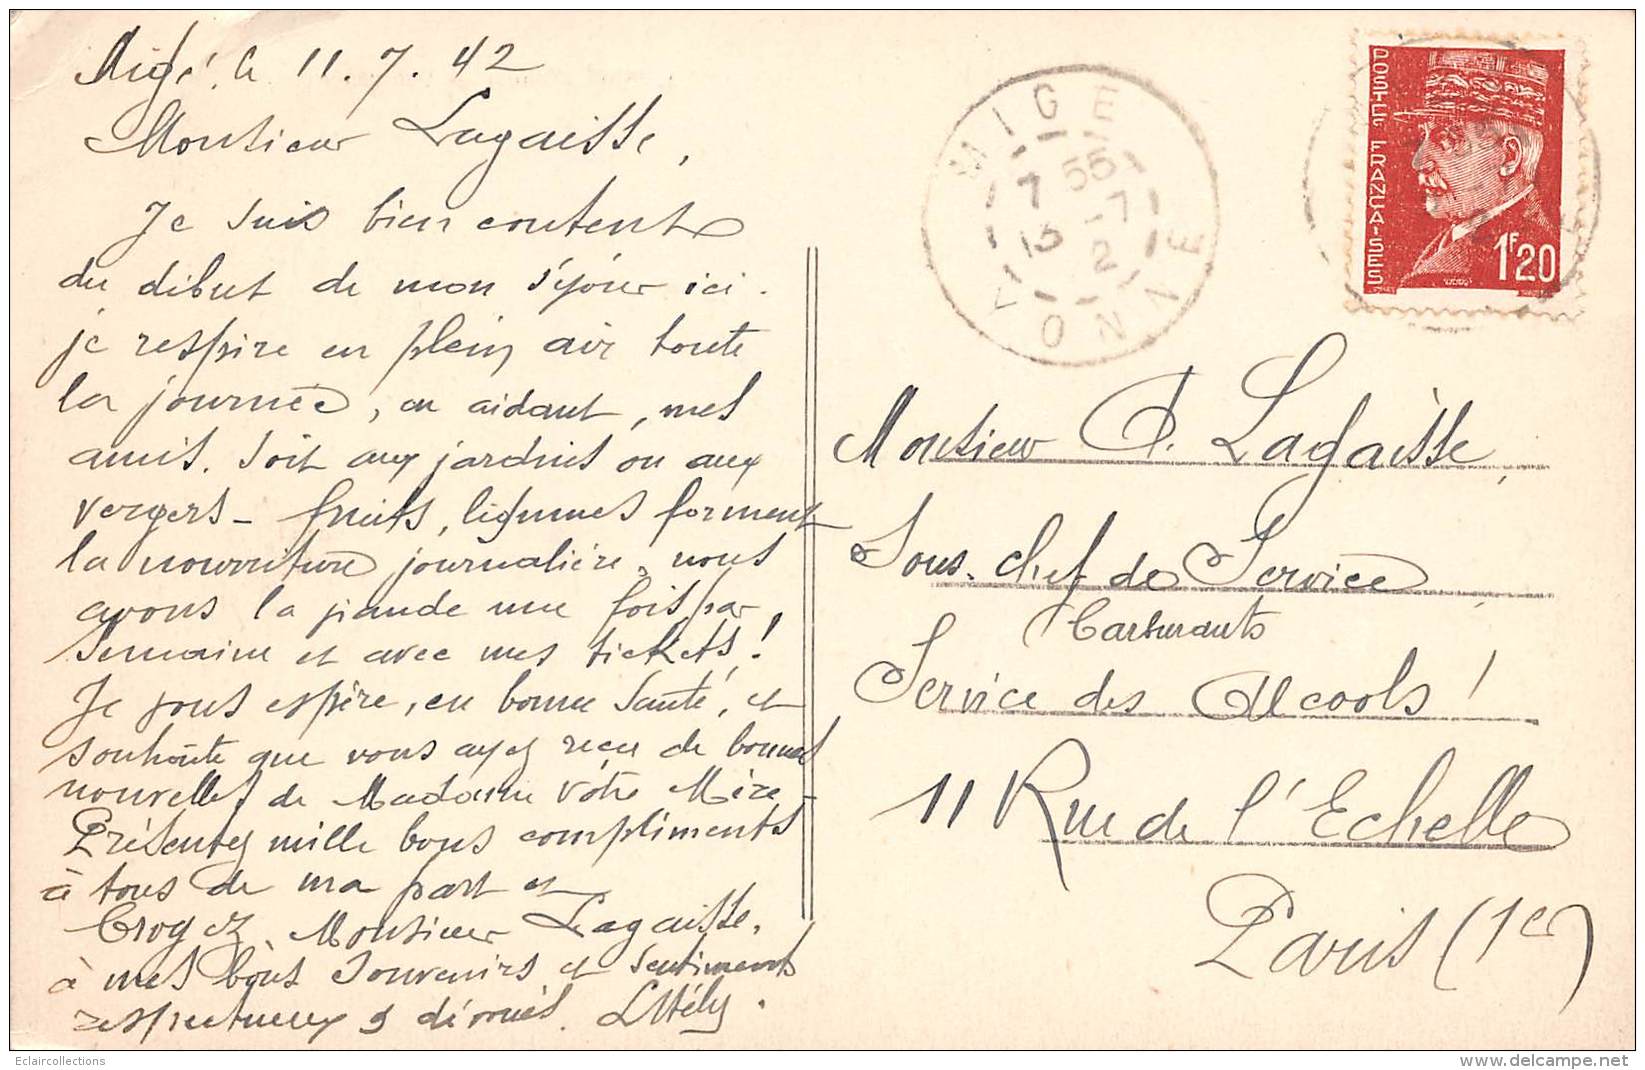 Migé, le 11.7.42
Monsieur Lagaisse,
Je suis bien content
du début de mon séjour ici.
je respire en plein air toute
la journée, en aidant, mes
amis. soit aux jardins ou aux
vergers - fruits, légumes forment
la nourriture journalière. nous
avons la viande une fois par
semaine et avec mes tickets!
Je vous espère, en bonne santé, et
souhaite que vous ayez reçu de bonnes
nouvelles de Madame votre Mère -
Présentez mille bons compliments
à tous de ma part et
Croyez, Monsieur Lagaisse,
à mes bons souvenirs et sentiments
respectueux & dévoués.
MIGE
7 55
13 -7
2
YONNE
POSTES FRANÇAISES
1F20
Monsieur P. Lagaisse,
Sous-Chef de Service
Carburants
Service des Alcools!
11 Rue de l'Echelle
Paris (1er)
Eclaircollections
delcampe.net